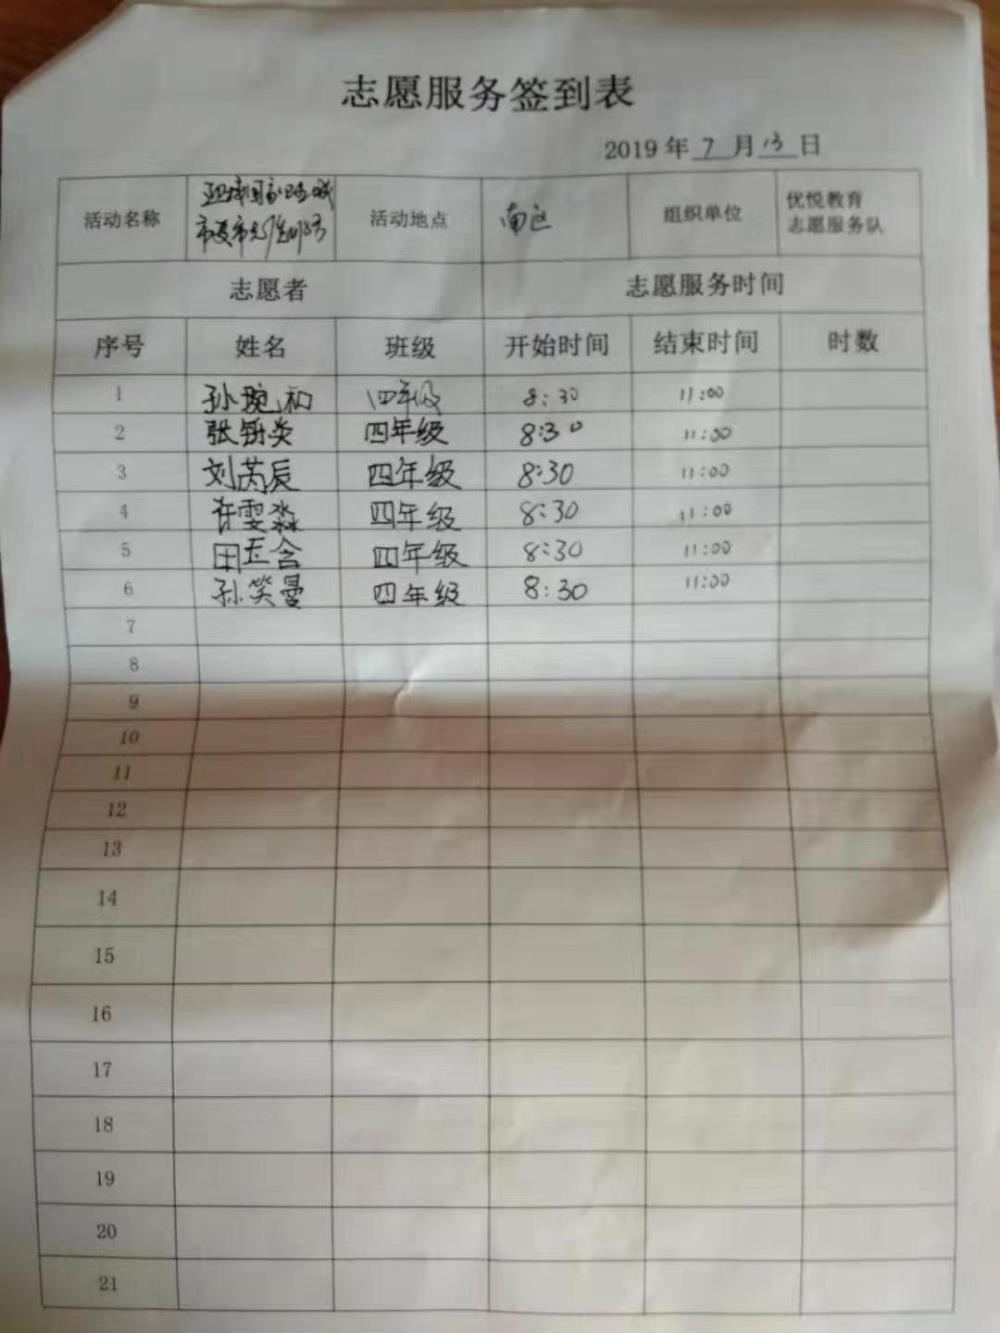 志愿服务签到表
2019 年 7 月 13 日
活动名称
活动地点 南区 组织单位 优悦教育
志愿服务队
志愿者 志愿服务时间
序号 姓名 班级 开始时间 结束时间 时数
1 孙 四年级 8:30 11:00
2 张 四年级 8:30 11:00
3 刘芮辰 四年级 8:30 11:00
4 许雯淼 四年级 8:30 11:00
5 田五含 四年级 8:30 11:00
6 孙笑曼 四年级 8:30 11:00
7
8
9
10
11
12
13
14
15
16
17
18
19
20
21